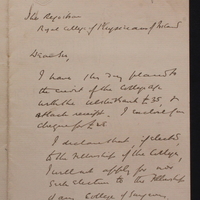 The Registrar
Royal College of Physicians of Ireland
Dear Sir,
I have this day placed to
the credit of the College
with the Ulster Bank £35, &
attach receipt. I enclose a
cheque for £
I declare that, if elected
to the Fellowship of the College,
I will not apply for nor
seek election to the Fellowship
of any College of Surgeons